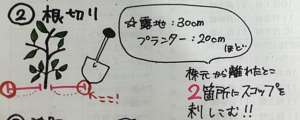 ② 根切り
☆露地：30cm
プランター：20cm
ほど
株元から離れたとこ
2箇所にスコップを
刺しこむ!!